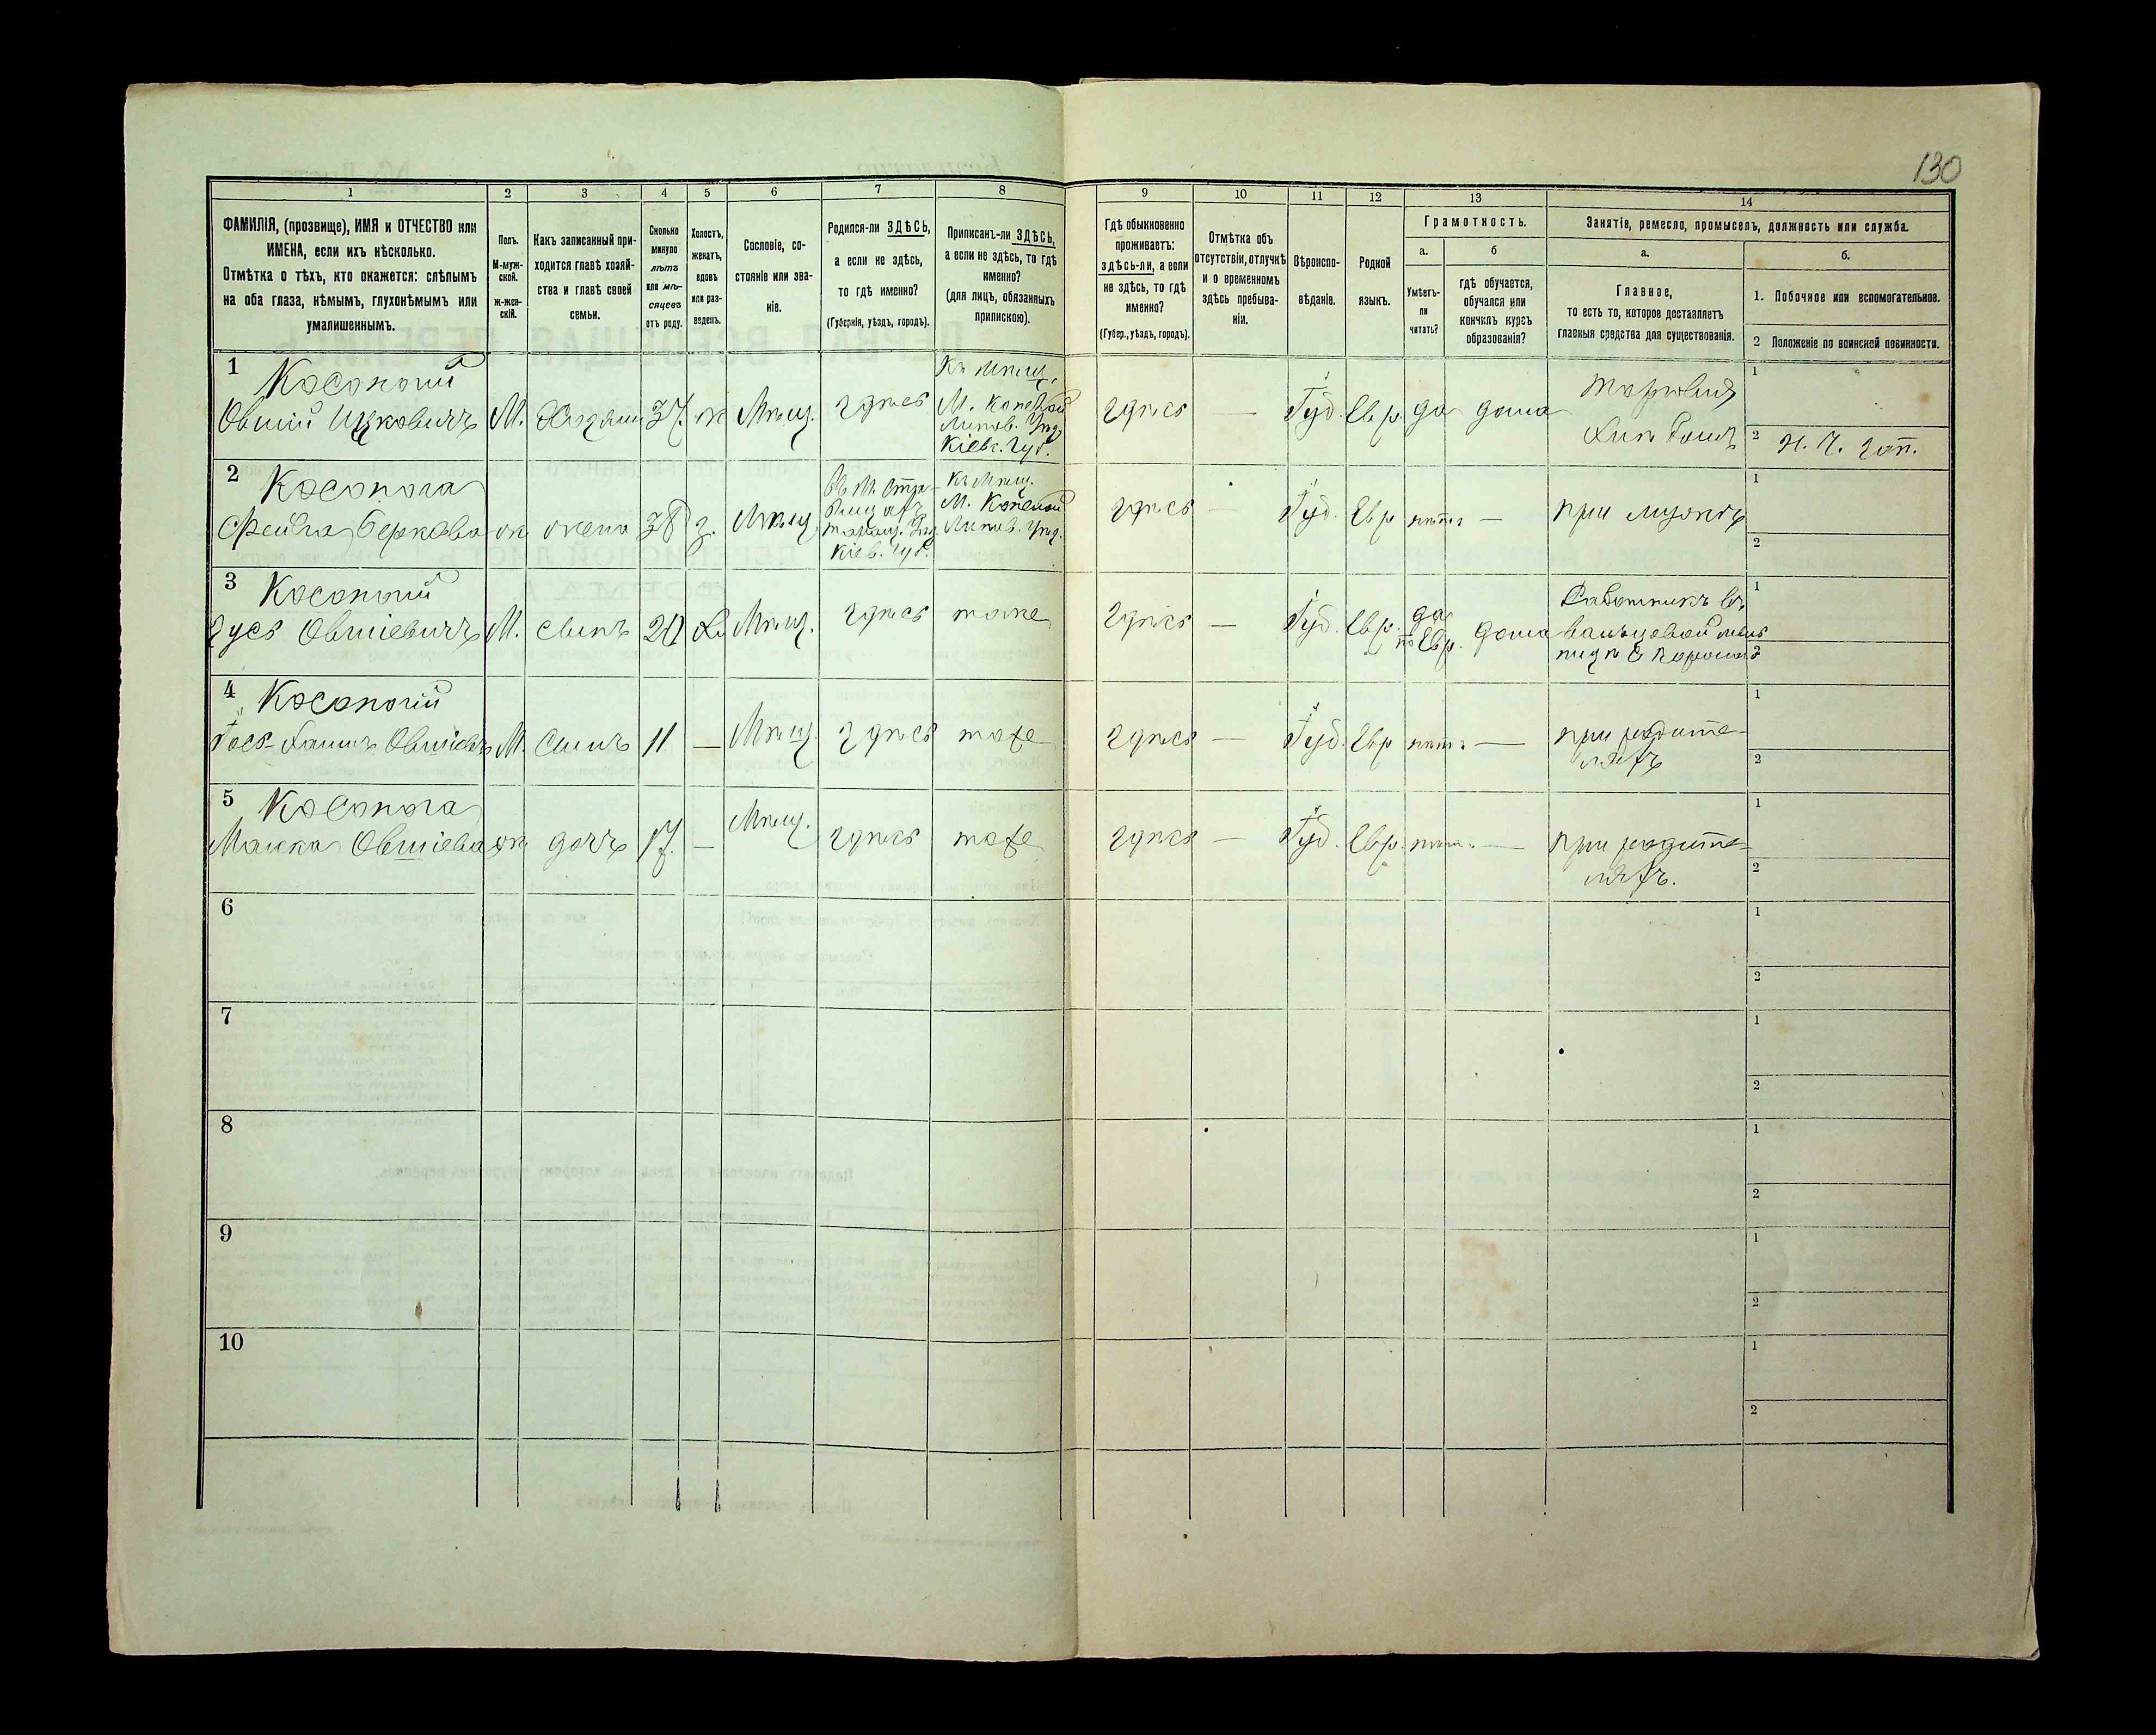 130
1
2
3
4
5
6
7
8
9
10
11
12
13
14
ФАМИЛІЯ, (прозвище), ИМЯ и ОТЧЕСТВО или
ИМЕНА, если ихъ нѣсколько.
Отмѣтка о тѣхъ, кто окажется: слѣпымъ
на оба глаза, нѣмымъ, глухонѣмымъ или
умалишеннымъ.
Полъ.
М-муж-
ской.
Ж-жен-
скій.
Какъ записанный при-
ходится главѣ хозяй-
ства и главѣ своей
семьи.
Сколько
минуло
лѣтъ
или мѣ-
сяцевъ
отъ роду.
Холостъ,
женатъ,
вдовъ
или раз-
веденъ.
Сословіе, со-
стояніе или зва-
ніе.
Родился-ли ЗДѢСЬ,
а если не здѣсь,
то гдѣ именно?
(Губернія, уѣздъ, городъ).
Приписанъ-ли ЗДѢСЬ,
а если не здѣсь, то гдѣ
именно?
(для лицъ, обязанныхъ
припискою).
Гдѣ обыкновенно
проживаетъ:
здѣсь-ли, а если
не здѣсь, то гдѣ
именно?
(Губер., уѣздъ, городъ).
Отмѣтка объ
отсутствіи, отлучкѣ
и о временномъ
здѣсь пребыва-
ніи.
Вѣроиспо-
вѣданіе.
Родной
языкъ.
Грамотность.
а.
Умѣетъ-
ли
читать?
б
гдѣ обучается,
обучался или
кончилъ курсъ
образованія?
Занятіе, ремесло, промыселъ, должность или служба.
а.
Главное,
то есть то, которое доставляетъ
главныя средства для существованія.
б.
1. Побочное или вспомогательное.
2 Положеніе по воинской повинности.
1 Косоногій
Овший Ицковичъ
М.
Хозяинъ
37.
ж
Мѣщ.
здѣсь
Къ Мѣщ.
М. Копѣвой
Липов. Уѣз
Кіевс. Губ.
здѣсь
—
Іуд.
Евр.
да
дома
Торговля
хлѣбомъ
1
2
2 Косонога
Фейга Беркова
ж
жена
38
з.
Мѣщ.
Таращ. Уѣз.
Кіев. Губ.
Къ Мѣщ.
М. Копѣвой
Липов. Уѣз.
здѣсь
—
Іуд.
Евр
нѣтъ
—
при мужѣ
1
2
3 Косоногій
Зусь Овшіевичъ
М.
сынъ
20
Х.
Мѣщ.
здѣсь
тоже
здѣсь
—
Іуд.
Евр.
да
по Евр.
дома
Работникъ въ
вальцевой мель
ницѣ
1
2
4 Косоногій
М.
сынъ
11
—
Мѣщ.
здѣсь
тоже
здѣсь
—
Іуд.
Евр
нѣтъ
—
при родите-
ляхъ
1
2
5 Косонога
Малка Овшіева
ж
дочь
17.
—
Мѣщ.
здѣсь
тоже
здѣсь
—
Іуд.
Евр.
нѣтъ
—
при родите-
ляхъ.
1
2
6
1
2
7
1
2
8
1
2
9
1
2
10
1
2